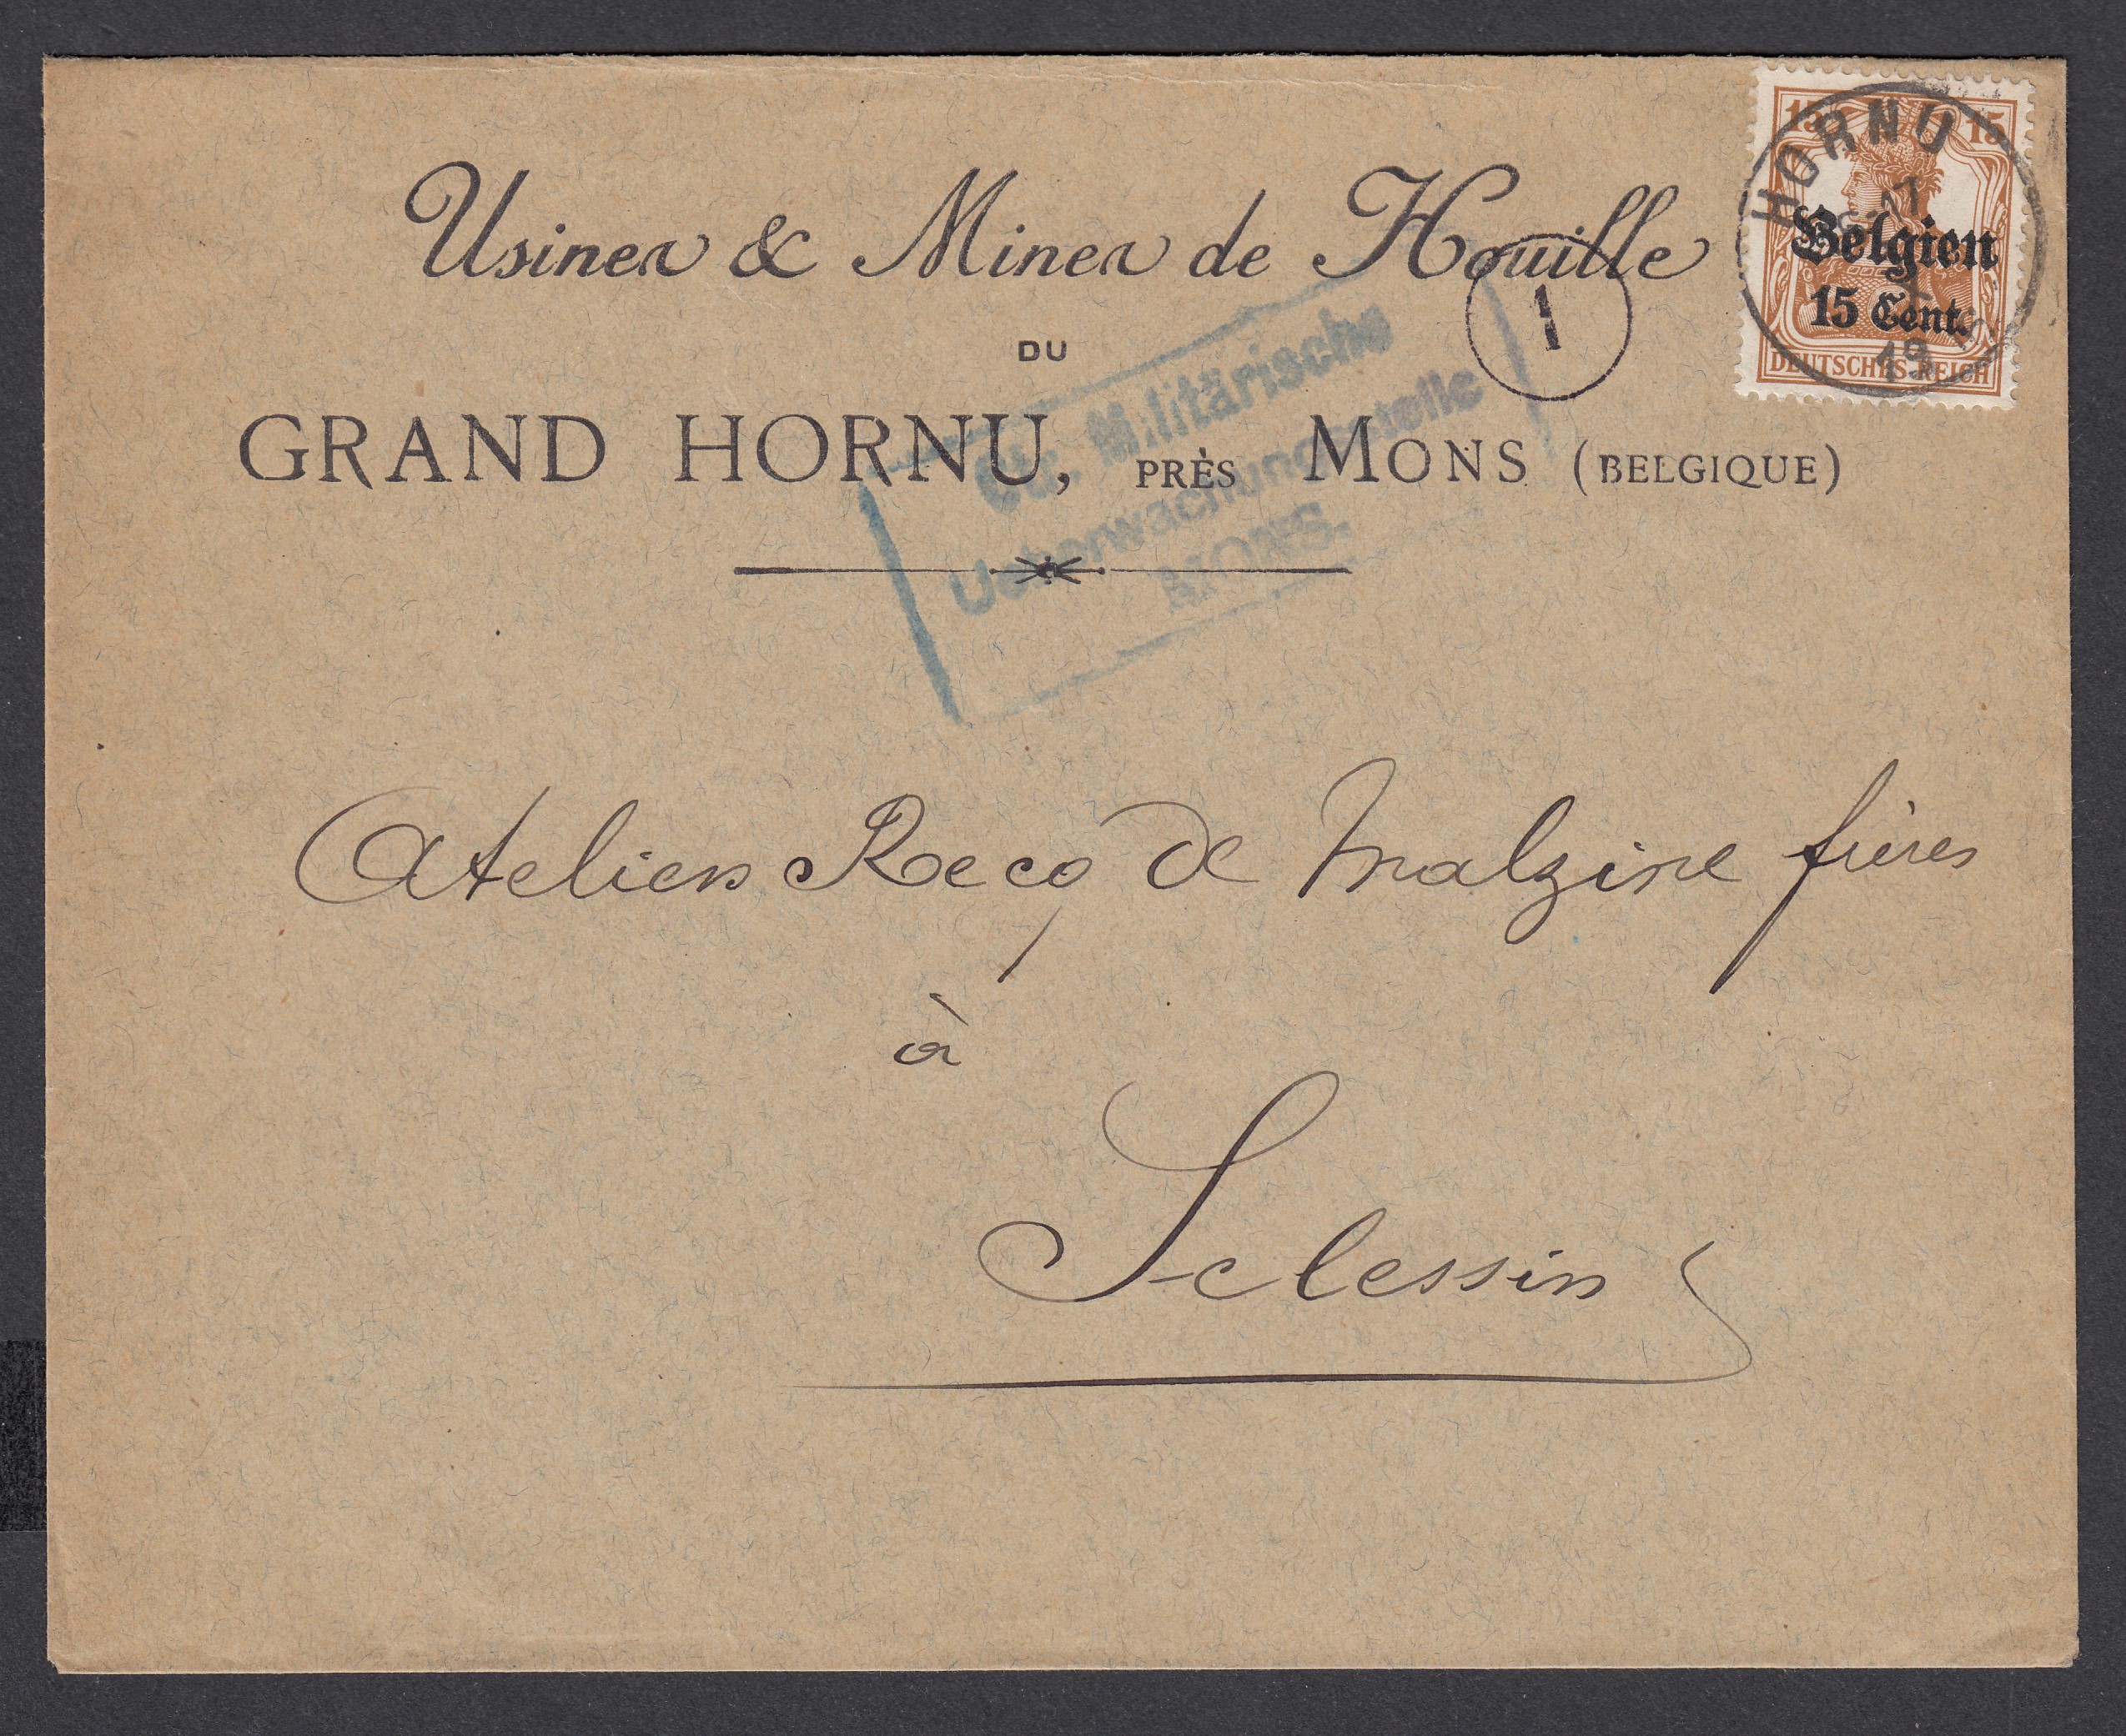 Usines & Mines de Houille
DU
GRAND HORNU, PRÈS MONS (BELGIQUE)
15 15
HORNU
Belgien
15 Cent.
DEUTSCHES REICH
1
Militärische
Ueberwachungsstelle
MONS.
Ateliers de Malzine frères
à
Sclessin